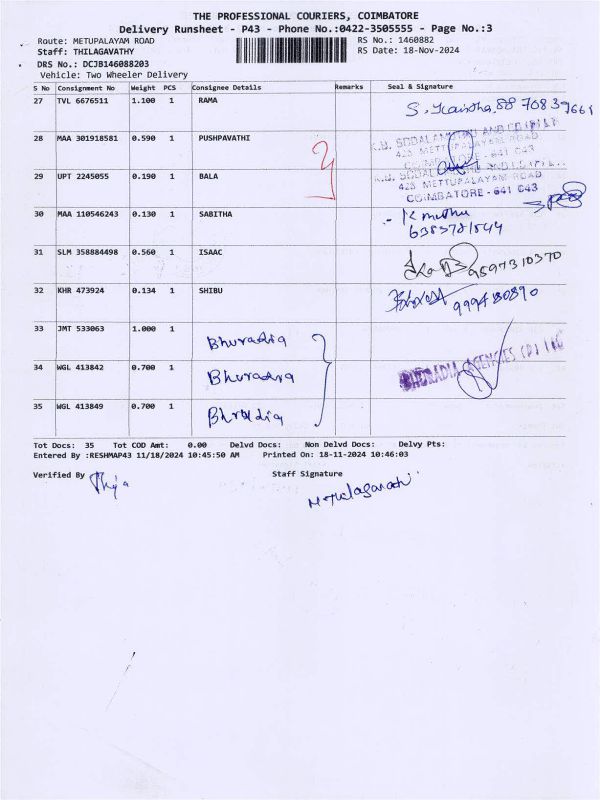 THE PROFESSIONAL COURIERS, COIMBATORE
Delivery Runsheet - P43 - Phone No.:0422-3505555 - Page No.:3
Route: METUPALAYAM ROAD RS No.: 1460882
Staff: THILAGAVATHY RS Date: 18-Nov-2024
DRS No.: DCJB146088203
Vehicle: Two Wheeler Delivery
S No Consignment No Weight PCS Consignee Details Remarks Seal & Signature
27 TVL 6676511 1.100 1 RAMA
28 MAA 301918581 0.590 1 PUSHPAVATHI
METTUPALAYAM ROAD
COIMBATORE - 641 043
29 UPT 2245055 0.190 1 BALA
425 METTUPALAYAM ROAD
COIMBATORE - 641 043
30 MAA 110546243 0.130 1 SABITHA K muthu
31 SLM 358884498 0.560 1 ISAAC 9597310370
32 KHR 473924 0.134 1 SHIBU
33 JMT 533063 1.000 1 Bhuradia
34 WGL 413842 0.700 1 Bhuradia BHURADIA AGENCIES (P) LTD
35 WGL 413849 0.700 1 Bhradia
Tot Docs: 35 Tot COD Amt: 0.00 Delvd Docs: Non Delvd Docs: Delvy Pts:
Entered By :RESHMAP43 11/18/2024 10:45:50 AM Printed On: 18-11-2024 10:46:03
Verified By Staff Signature
M. Thilagavathi